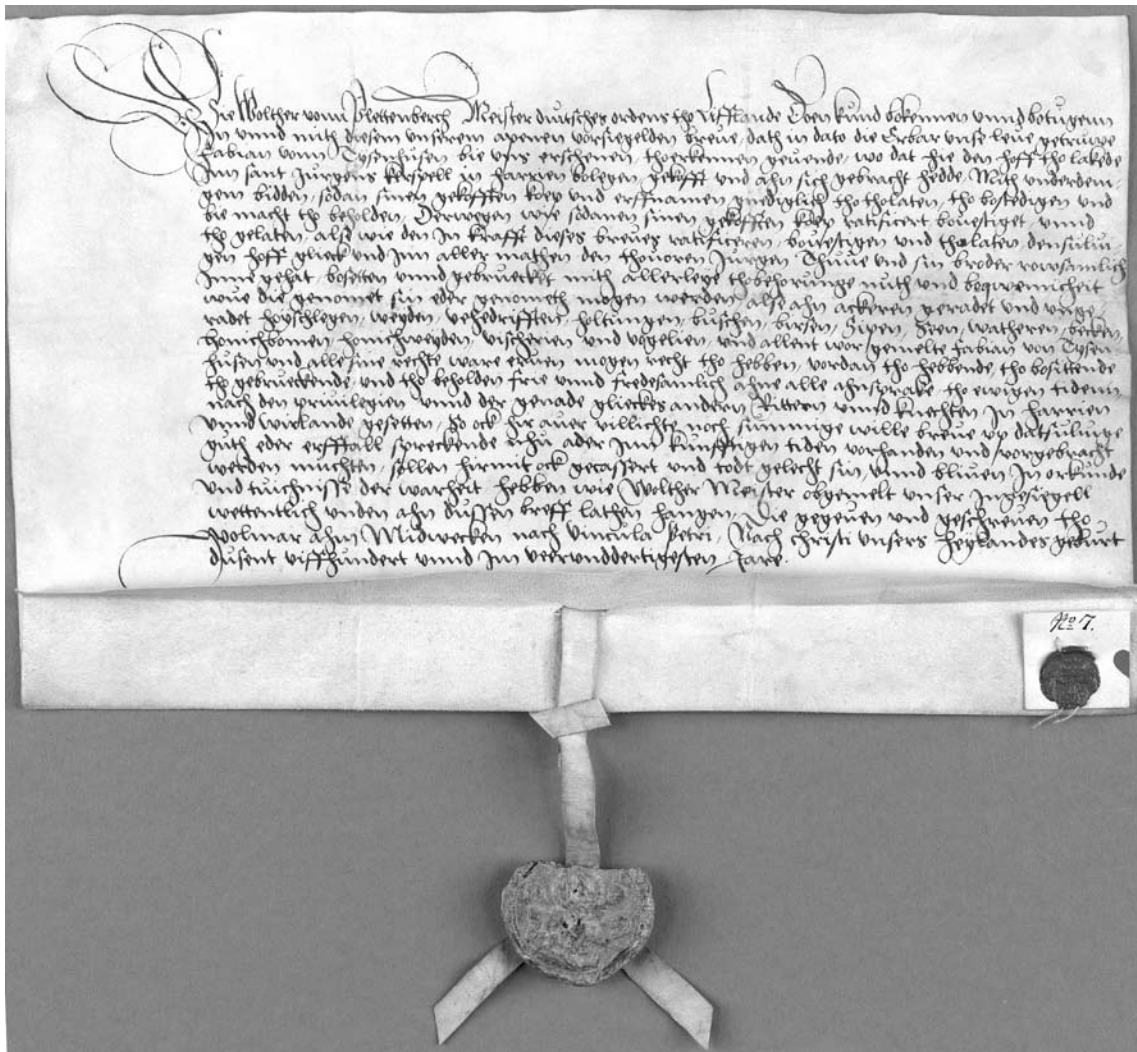 Wie Wolther vonn Plettenberch Meister diutsches ordens tho Lifflande Doen kund bekennen unnd botugenn
In unnd mith diesem unserem apenen vorsiegelden breve, dath in dato die Erbar unse leve getruwe
Fabian vonn Tysenhusen bie uns erschenen, tho erkennen gevende, wo dat hie den hoff tho lakede
Inn sant Jurgens kerspell in harrien bolegen, gekofft und ahn sich gebracht hedde, Mith underdeni-
gem bidden, sodan sinen gekofften koep und erffnamen gnediglich tho tholaten, tho bostedigen und
bie macht tho beholden, Derwegen wie sodanen sinen gekofften koep ratificert bovestiget, unnd
tho gelaten, alse wie den In krafft dieses breves ratificeren, bovestigen und tholaten densulvi-
gen hoff gliek und Inn aller mathen den thovoren Jurgen Thuve und sin broder rowsamlich
Inne gehat, bosetten unnd gebrueket mith allerleye thobehorunge nuth und boqwemicheit
wue die genomet sin eder genometh mogen werden, alse ahn ackeren geradet und unge-
radet hoyschlegen, weyden, vehedrifften, holtungen, buschen, birsen, Sipen, Seen, watheren, becken
honichbomen, honichweyden, vischerien und vogelien, und allent wor gemelte Fabian von Tysen
husen und alle sine rechte ware erven mogen recht tho hebben, vordan tho hebbende, tho bosittende
tho gebruekende, und tho beholden frie unnd fredesamlich ahne alle ahnsprake, tho ewigen tidenn
nach den privilegien unnd der genade gliekes andern Rittern unnd Knechten In harrien
unnd wirlande gesetten, So ock hir aver villichte noch summige wille breve up datsulvige
guth eder erfftall spreckende nhu ader Inn kunfftigen tiden vorhanden und vorgebracht
werden muchten, sollen hirmit ock gecassert und todt gelecht sin, unnd bliven, In orkunde
und tuichnisse der warheit, hebben wie Wolther Meister obgemelt unser Ingesiegell
wettentlich unden ahn dussen breff lathen hangen, Die gegeven und geschreven tho
Wolmar ahm Midwecken nach vincula Petri, Nach christi unsers Heylandes geburt
dusent viffhundert unnd Im veerunddertigesten Jare.
No 7.